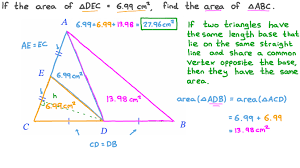 If the area of △DEC = 6.99 cm², find the area of △ABC.
6.99 + 6.99 + 13.98 = 27.96 cm²
A
AE = EC
E
6.99 cm²
h
6.99 cm²
13.98 cm²
C
D
B
CD = DB
If two triangles have
the same length base that
lie on the same straight
line and share a common
vertex opposite the base,
then they have the same
area.
area(△ADB) = area(△ACD)
= 6.99 + 6.99
= 13.98 cm²